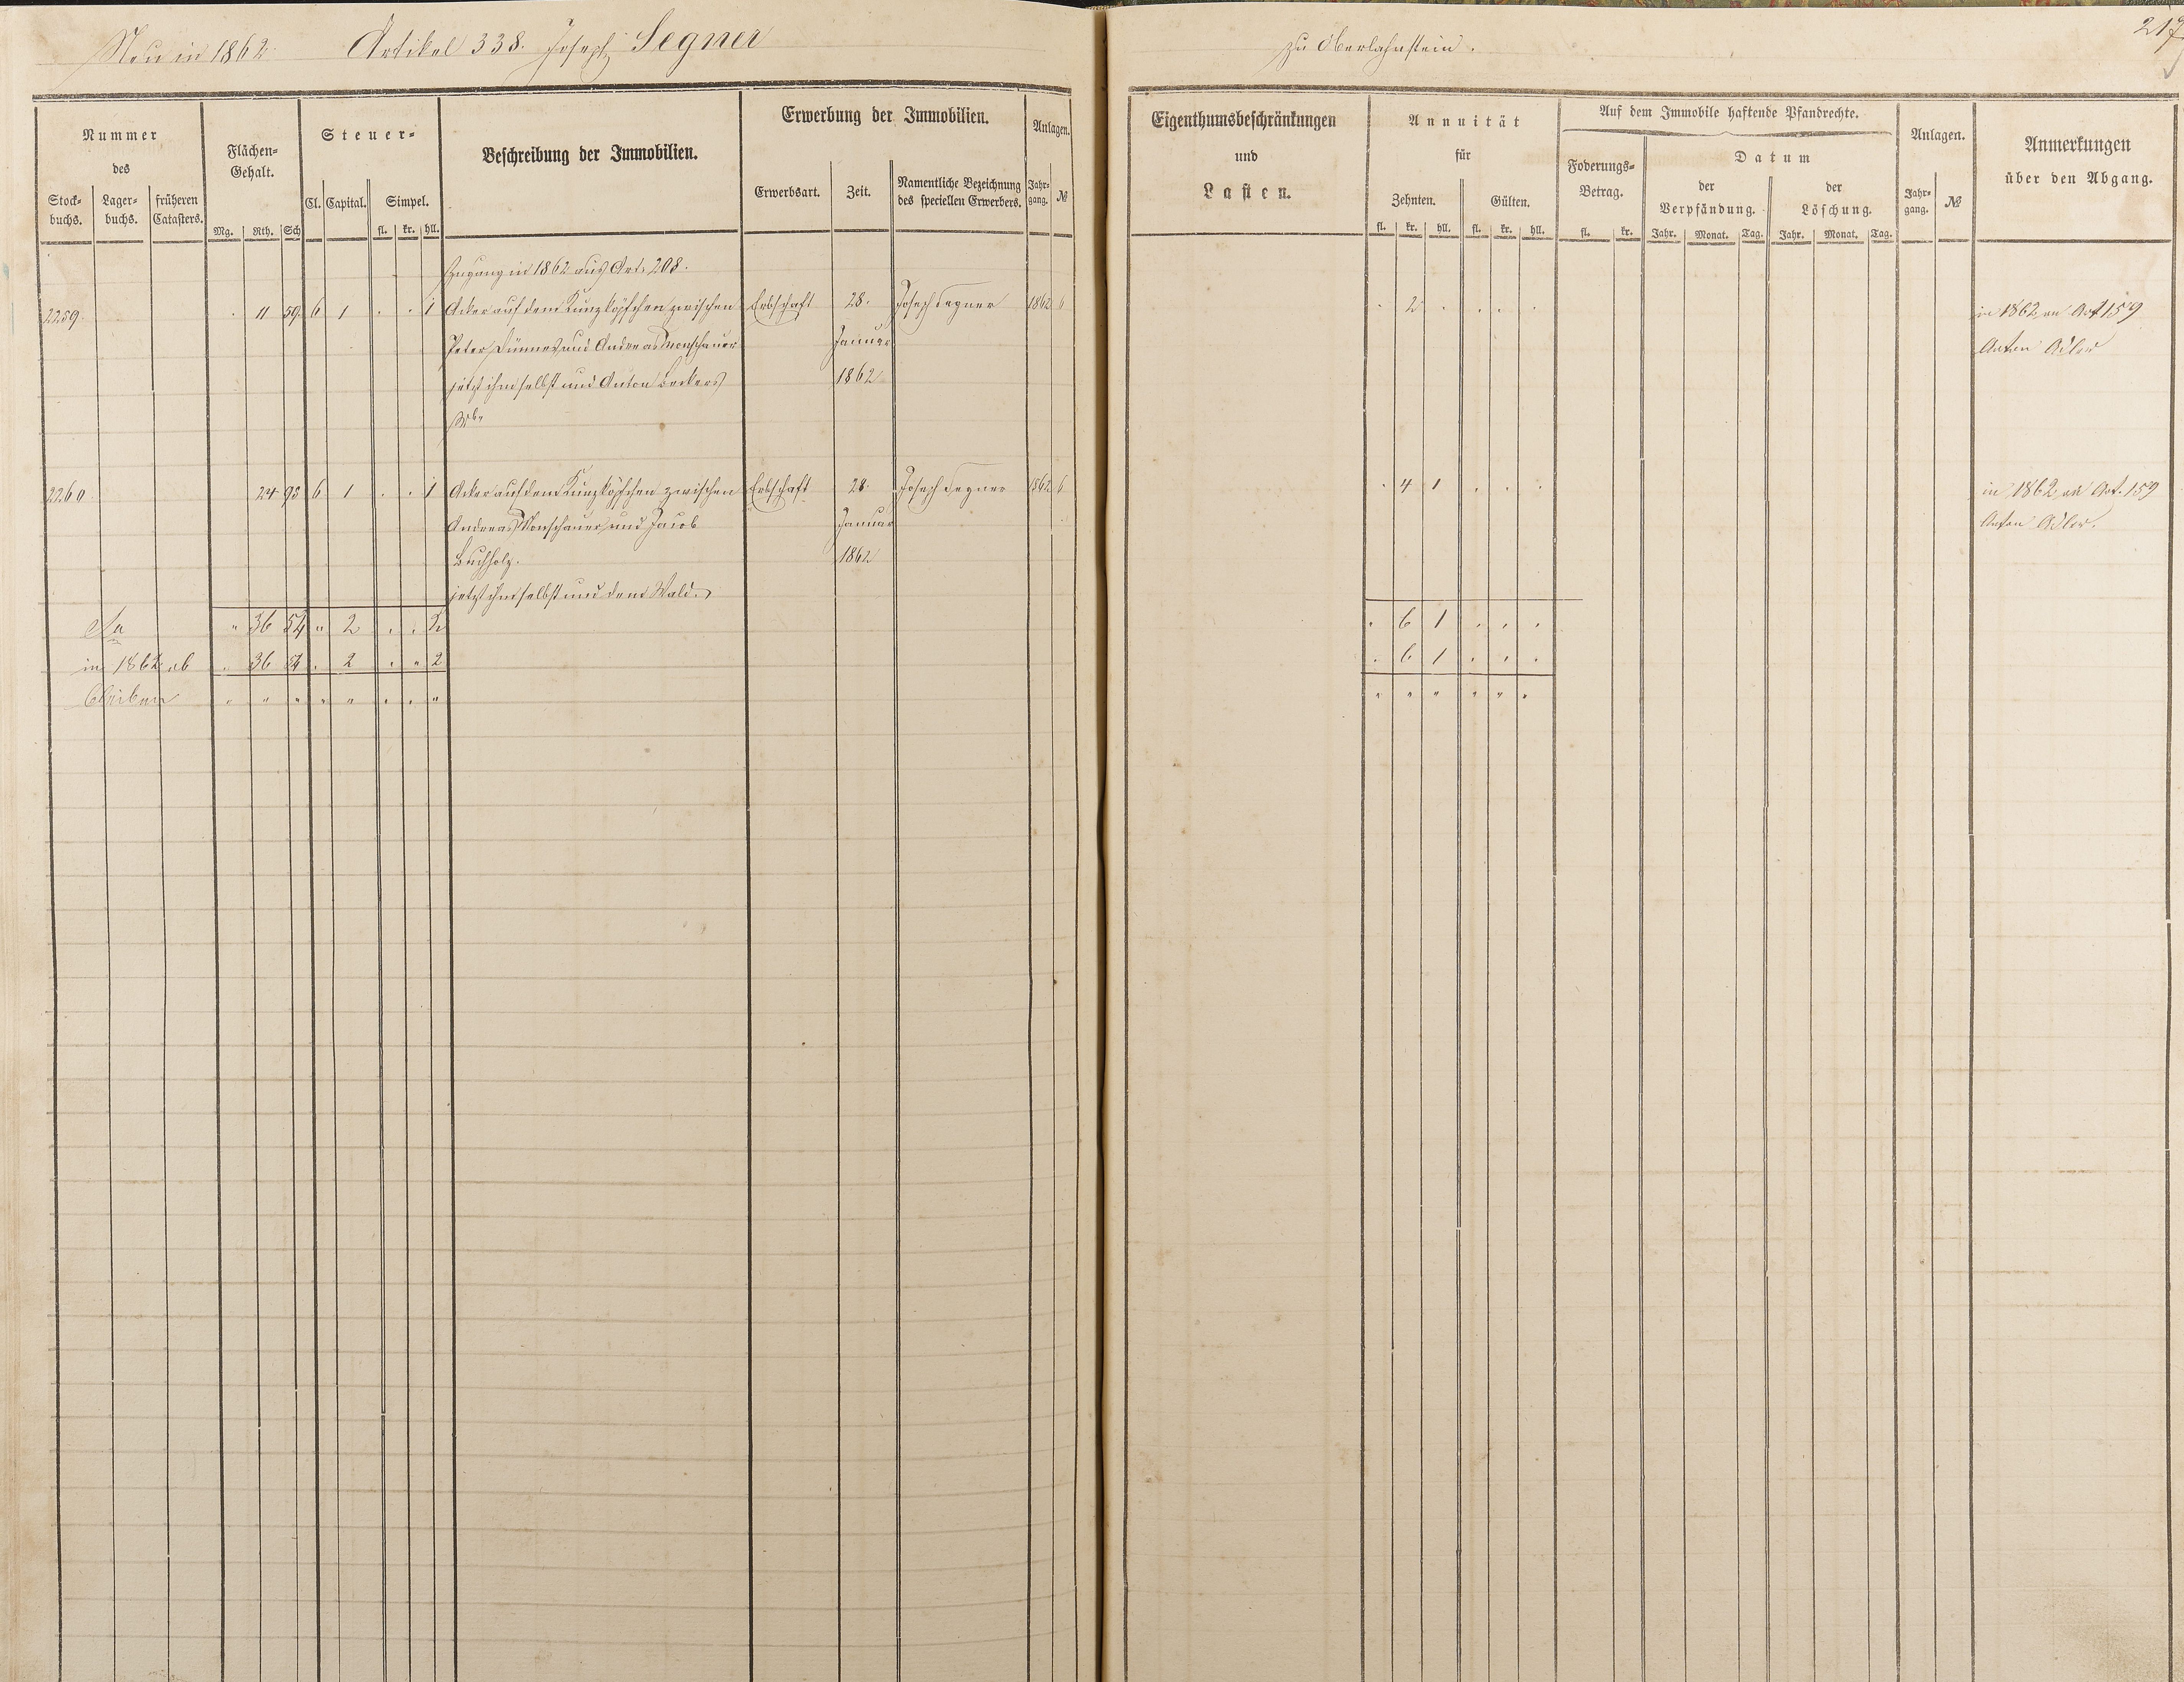 Neu in 1862. Artikel 338. Joseph Segner zu Oberlahnstein. 217
Nummer
des
Stock-
buchs.
Lager-
buchs.
früheren
Catasters.
Flächen-
Gehalt.
Mg. Rth. Sch
Steuer-
Cl. Capital. Simpel.
fl. kr. hll.
Beschreibung der Immobilien.
Erwerbung der Immobilien.
Erwerbsart. Zeit.
Namentliche Bezeichnung
des speciellen Erwerbers.
Anlagen.
Jahr-
gang.
№
Eigenthumsbeschränkungen
und
Lasten.
Annuität
für
Zehnten. Gülten.
fl. kr. hll. fl. kr. hll.
Auf dem Immobile haftende Pfandrechte.
Foderungs-
Betrag.
fl. kr.
Datum
der
Verpfändung.
Jahr. Monat. Tag.
der
Löschung.
Jahr. Monat. Tag.
Anlagen.
Jahr-
gang.
№
Anmerkungen
über den Abgang.
Zugang in 1862 aus Art. 208.
2259. . 11 59 6 1 . . 1 Acker auf dem Kunzköpfchen zwischen Erbschaft 28. Joseph Segner 1862 6 . 2 . . . . in 1862 an Art 159
Peter und Andreas Monschauer Januar Anton Adler
jetzt ihm selbst und Anton Beckers 1862
Wb.
2260 24 95 6 1 . . 1 Acker auf dem Kunzköpfchen zwischen Erbschaft 28. Joseph Segner 1862 6 . 4 1 . . . in 1862 an Art. 159
Andreas Monschauer und Jacob Januar Anton Adler.
Buchholz. 1862
jetzt ihm selbst und dem Wald.
Sa " 36 54 " 2 . . 2 . 6 1 . . .
in 1862 ab . 36 54 . 2 . " 2 . 6 1 . . .
Bleiben " " " " " " " " " " " " " "